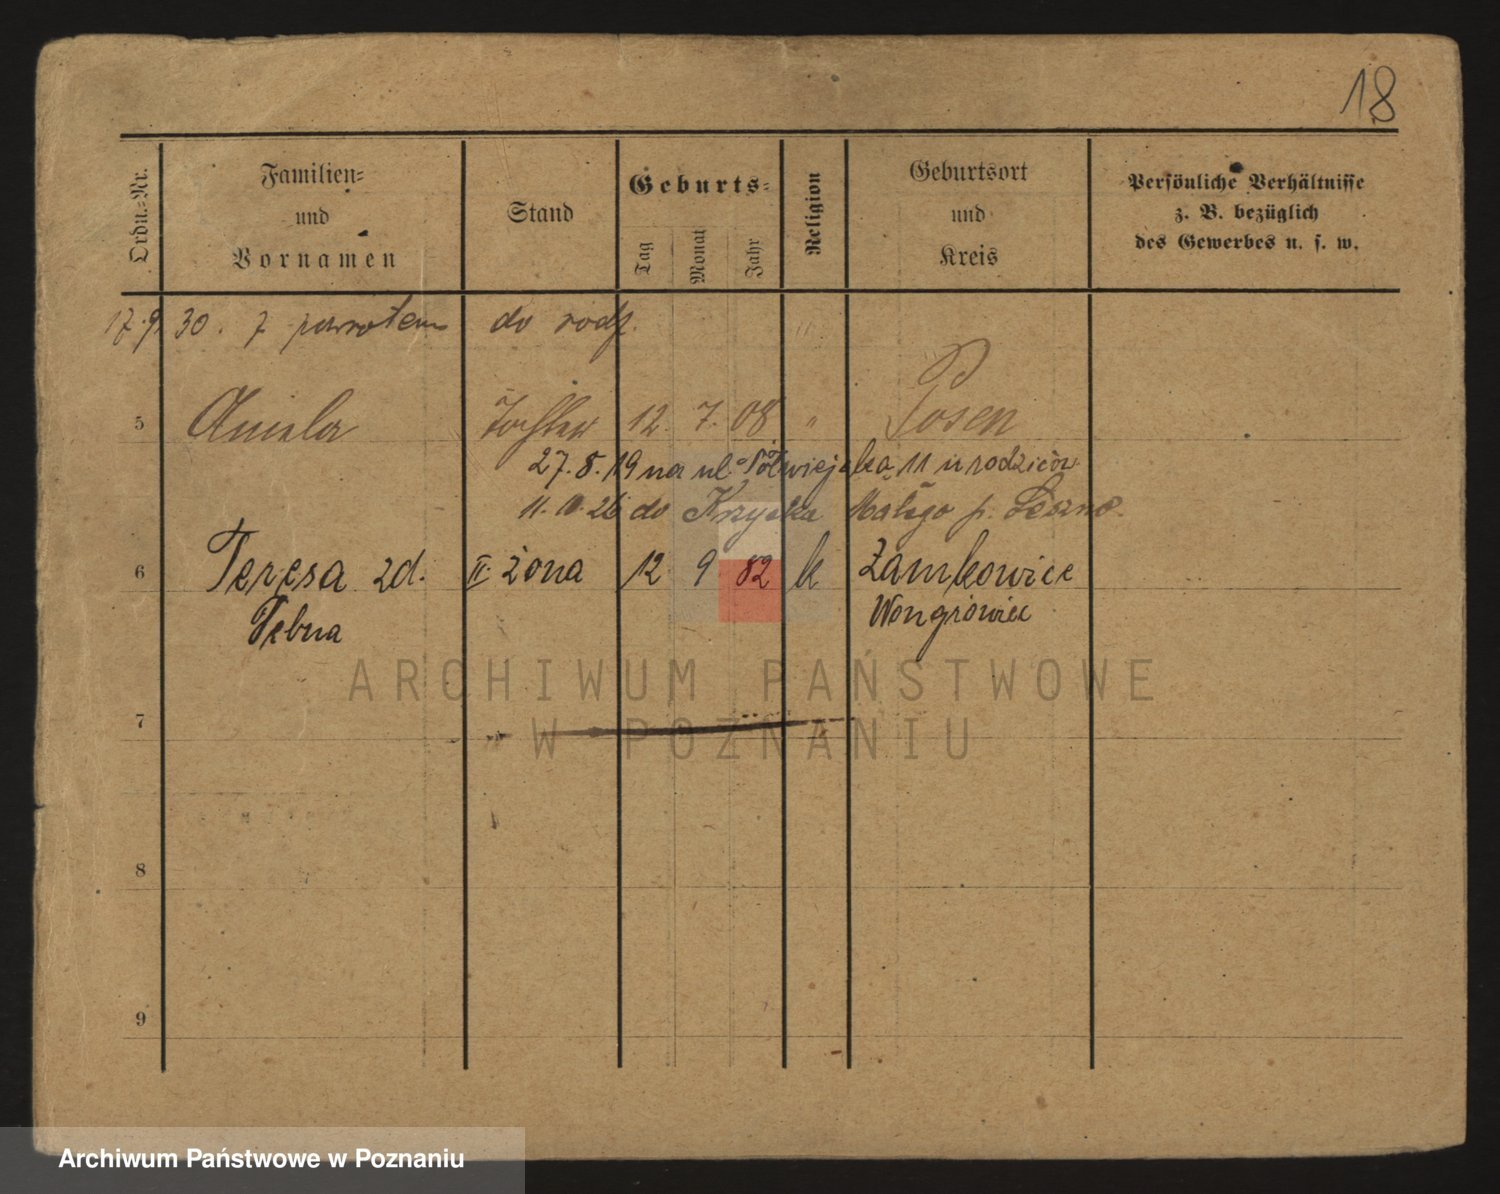 18
Ordn.-Nr.
Familien-
und
Vornamen
Stand
Geburts-
Tag
Monat
Jahr
Religion
Geburtsort
und
Kreis
Persönliche Verhältnisse
z. B. bezüglich
des Gewerbes u. s. w.
17.9.30. z powrotem do rodz.
5 Aniela Tochter 12. 7. 08 " Posen
27.8.19 na ul. Półwiejska 11 u rodziców
26 do Krzycka Małego p. Leszno.
6 Teresa zd. II. żona 12 9 82 k Zamkowice
Tebna Wongrowiec
7
8
9
ARCHIWUM PAŃSTWOWE
W POZNANIU
Archiwum Państwowe w Poznaniu